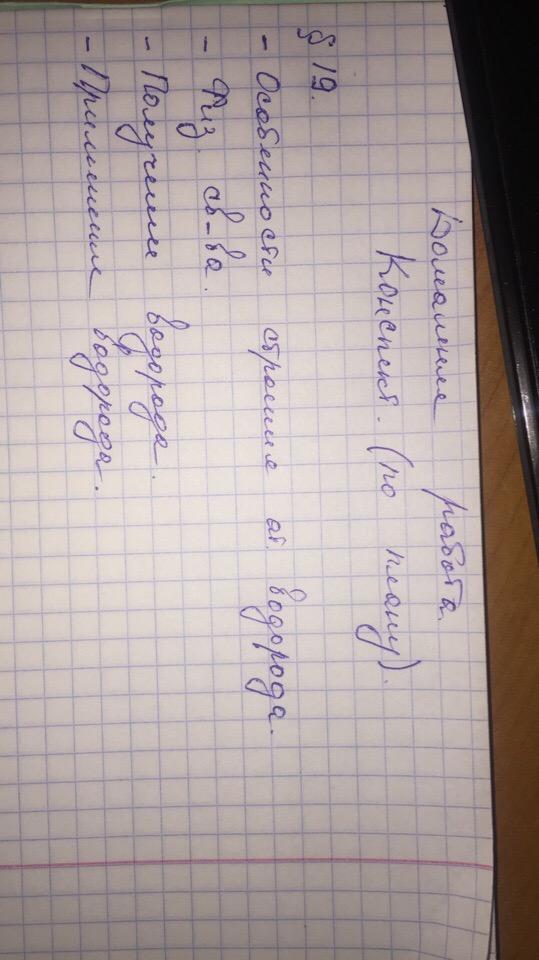 Домашняя работа.
Конспект. (по плану).
§ 19.
- Особенности строения ат. водорода.
- Физ. св-ва.
- Получение водорода.
- Применение водорода.